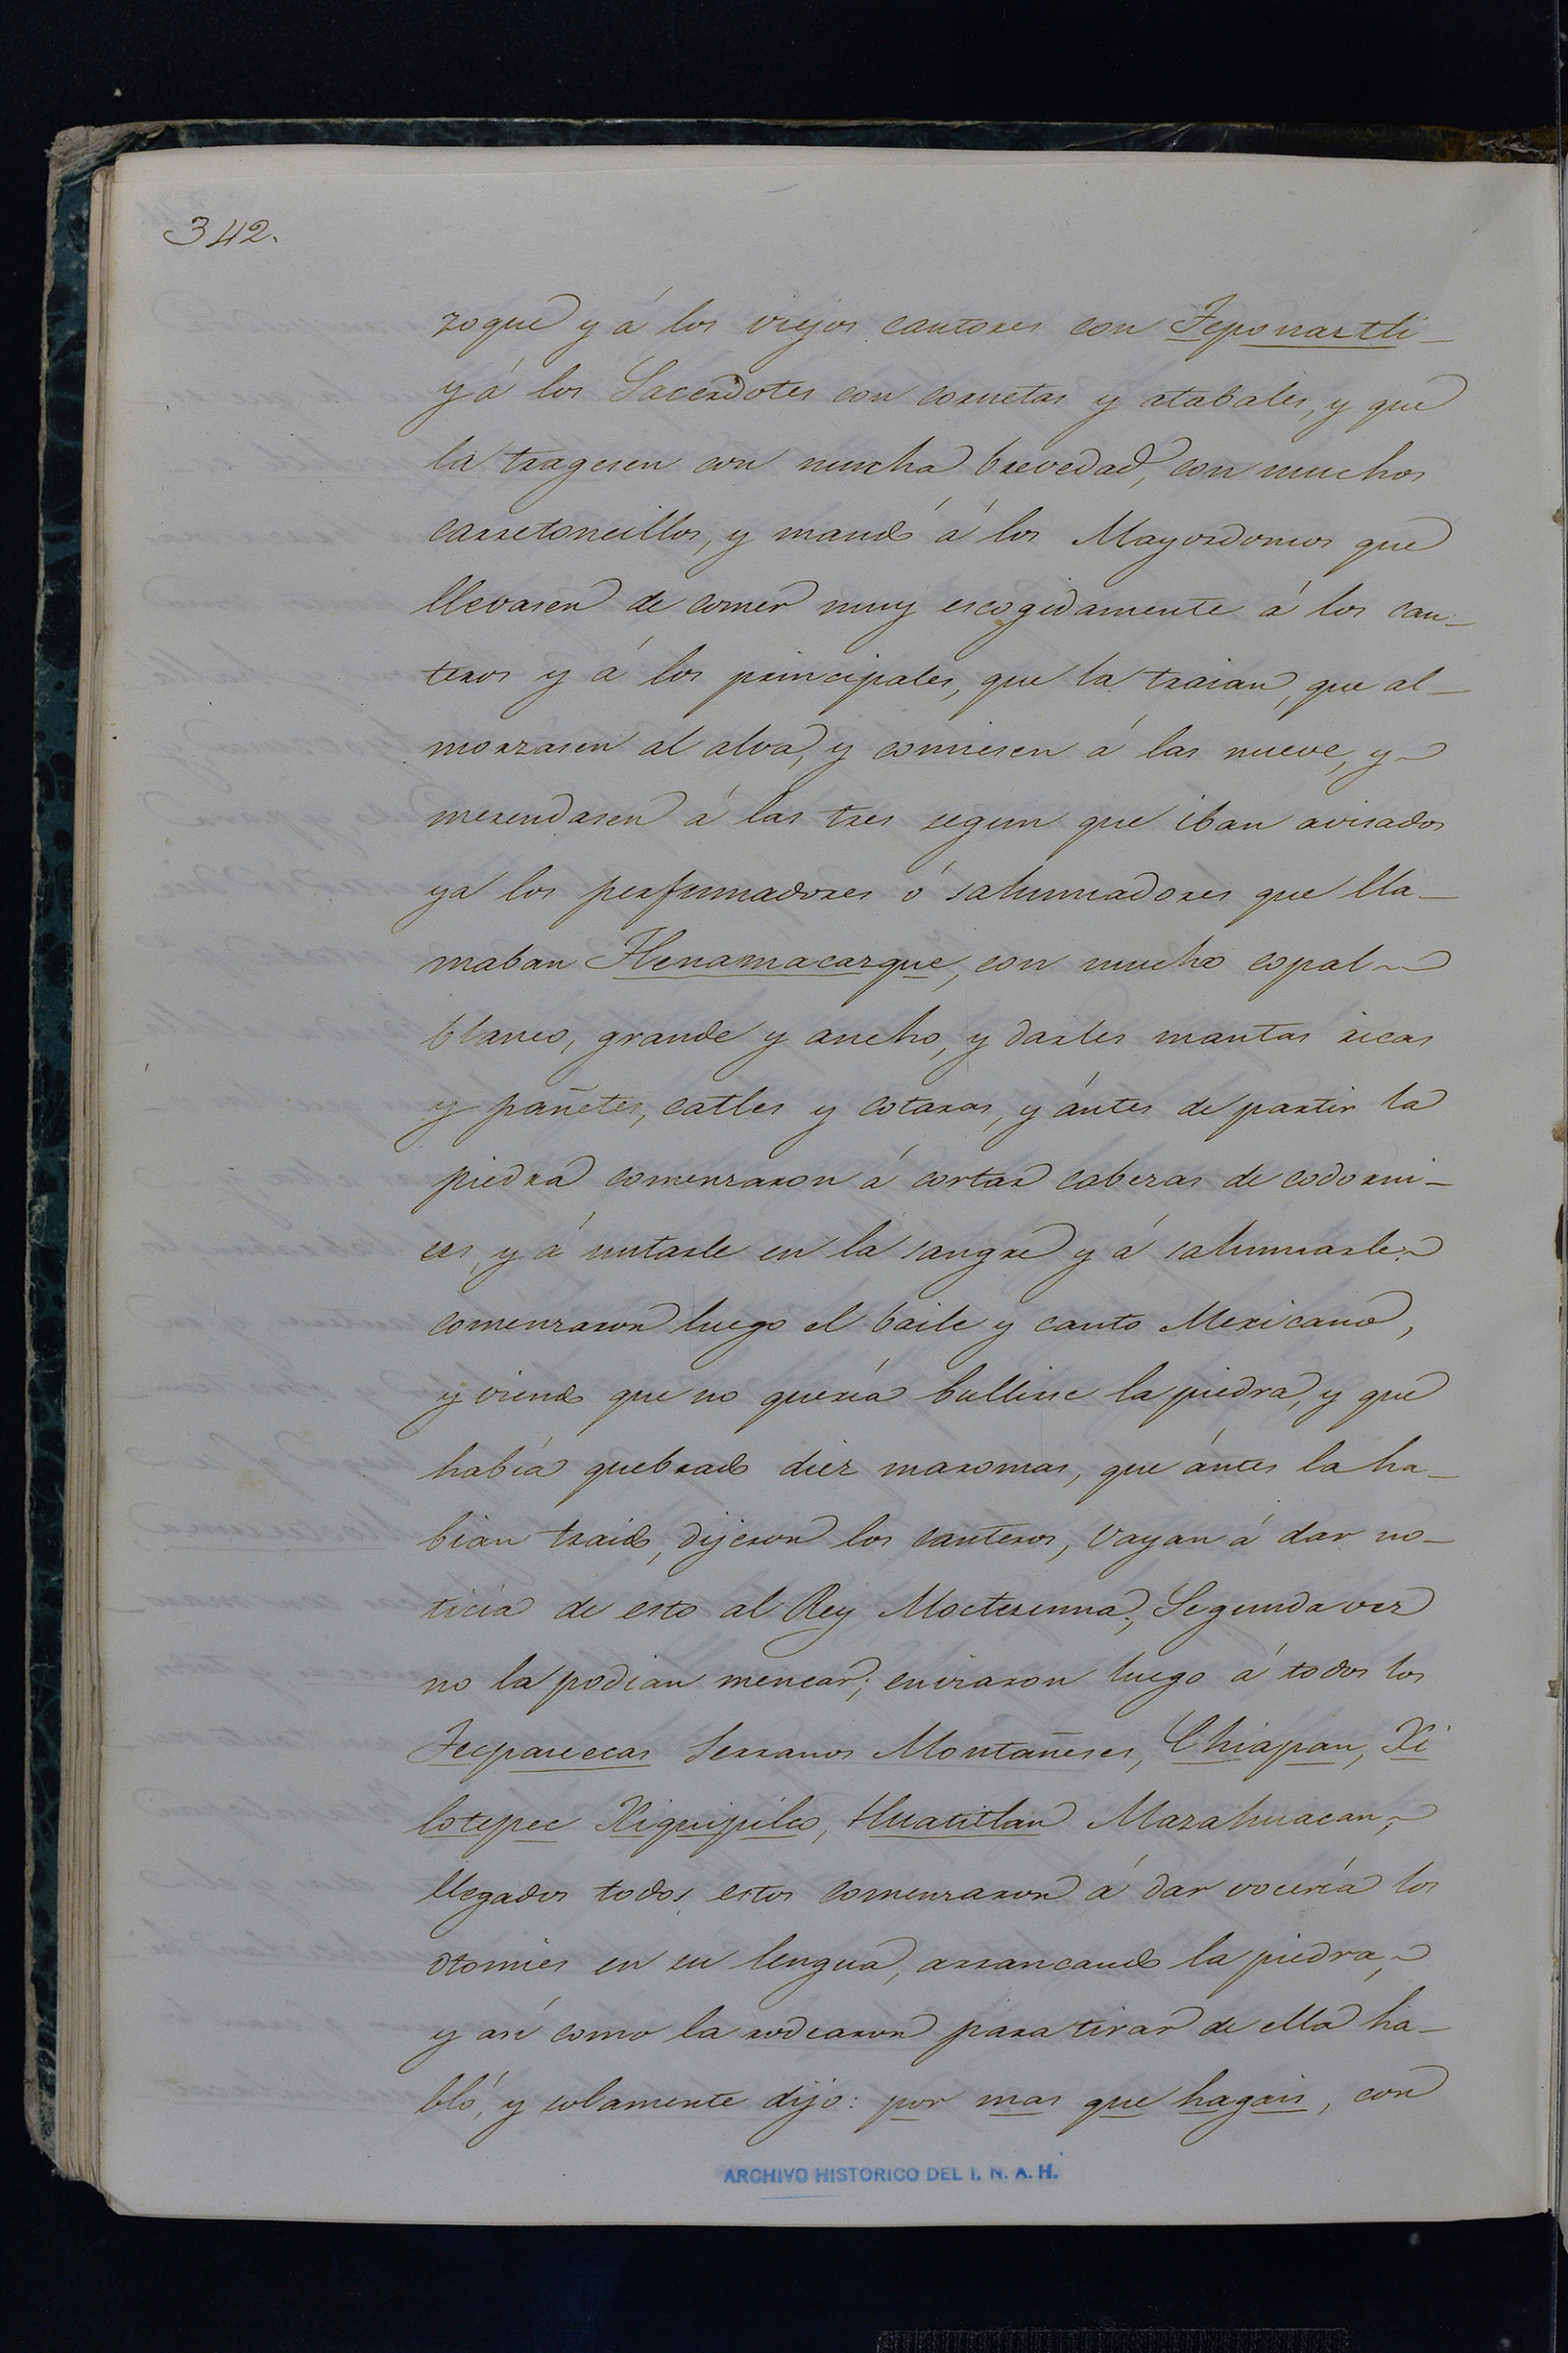 342.
zoque y á los viejos cantores con Teponaztli_
y á los Sacerdotes con cornetas y atabales, y que
la tragesen con mucha brevedad, con muchos
carretoncillos, y mandó á los Mayordomos que
llevasen de comer muy escogidamente á los can_
teros y á los principales, que la traian, que al_
morzasen al alva, y comiesen á las nueve, y
merendasen á las tres segun que iban avisados
ya los perfumadores ó sahumadores que lla_
maban Tlenamacazque, con mucho copal
blanco, grande y ancho, y darles mantas ricas
y pañetes, catles y cotaras, y ántes de partir la
piedra comenzaron á cortar cabezas de codorni_
ces, y á untarle en la sangre y á sahumarle;
comenzaron luego el baile y canto Mexicano,
y viendo que no quería bullirse la piedra, y que
había quebrado diez maromas, que ántes la ha_
bian traido, dijeron los canteros, vayan á dar no_
ticia de esto al Rey Moctezuma; Segunda vez
no la podian menear; enviaron luego á todos los
Tecpanecas Serranos Montañeses, Chiapan, Xi
lotepec Xiquipilco, Huatitlan Mazahuacan;
llegados todos estos comenzaron á dar vocería los
otomies en su lengua, arrancando la piedra,
y así como la rodearon para tirar de ella ha_
bló, y solamente dijo: por mas que hagais, con
ARCHIVO HISTORICO DEL I. N. A. H.